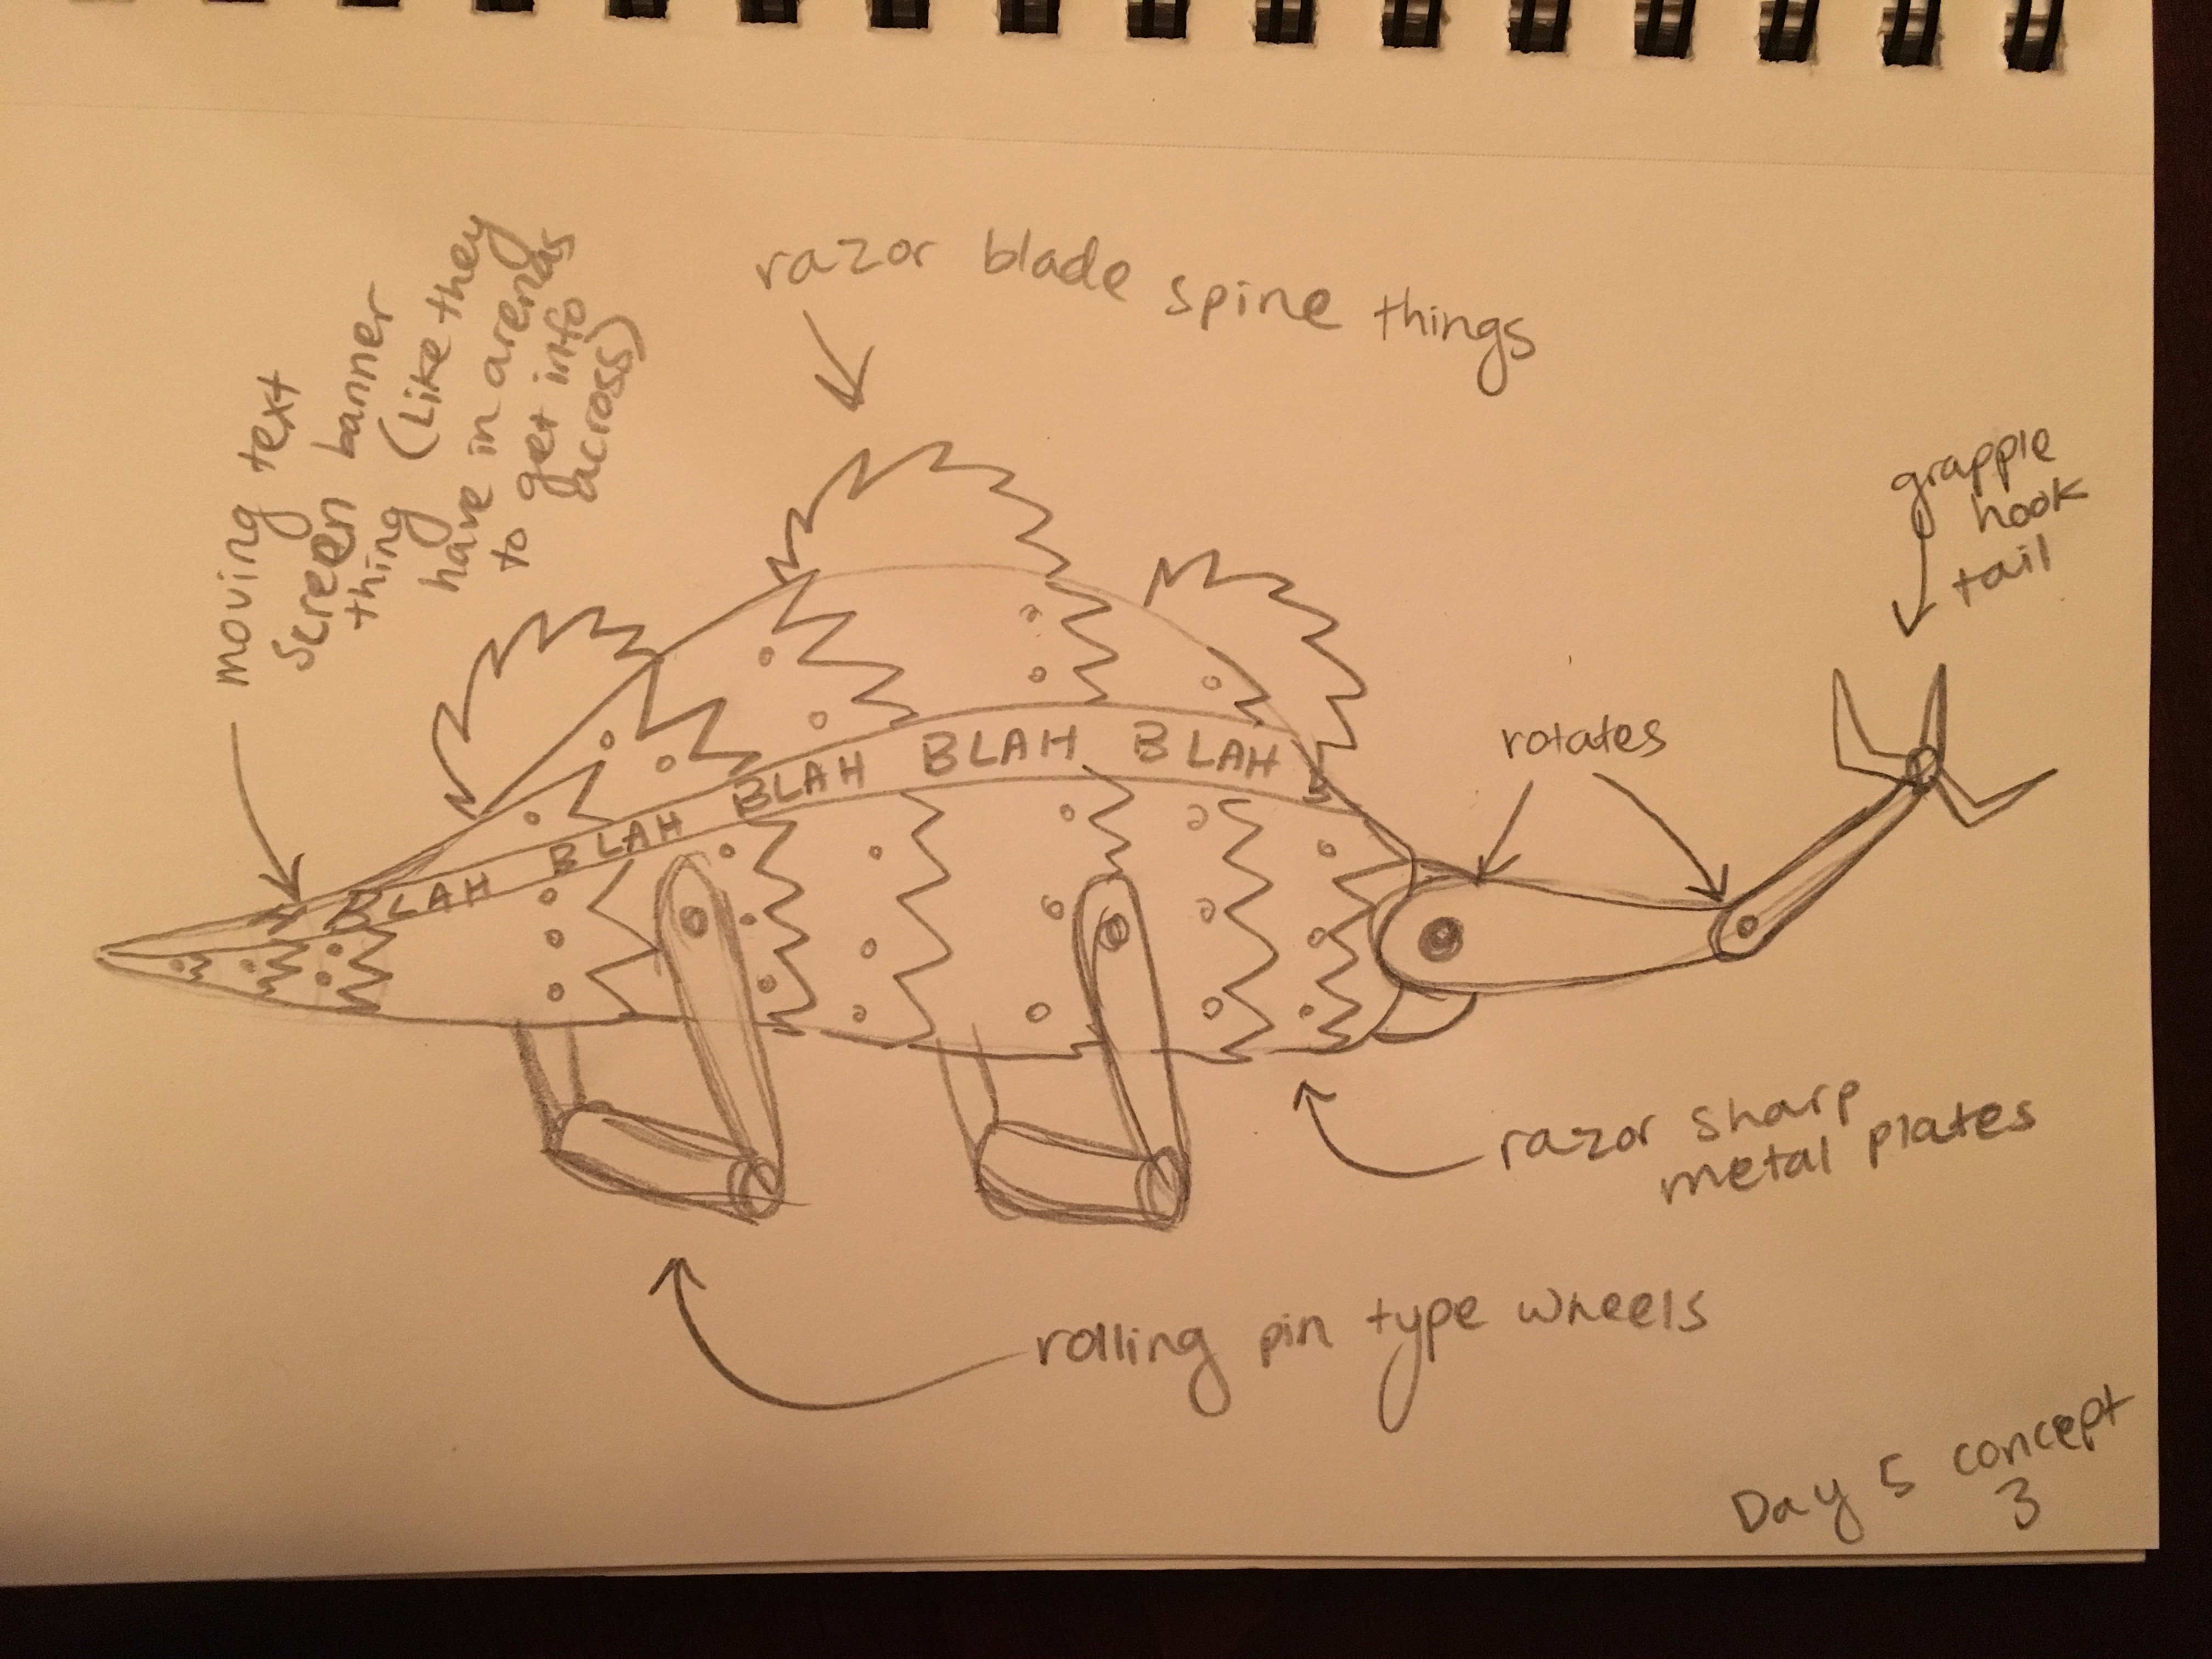 moving text
screen banner
thing (Like they
have in arenas
to get info
across)
razor blade spine things
grapple
hook
tail
rotates
BLAH BLAH BLAH BLAH BLAH
razor sharp
metal plates
rolling pin type wheels
Day 5 concept
3